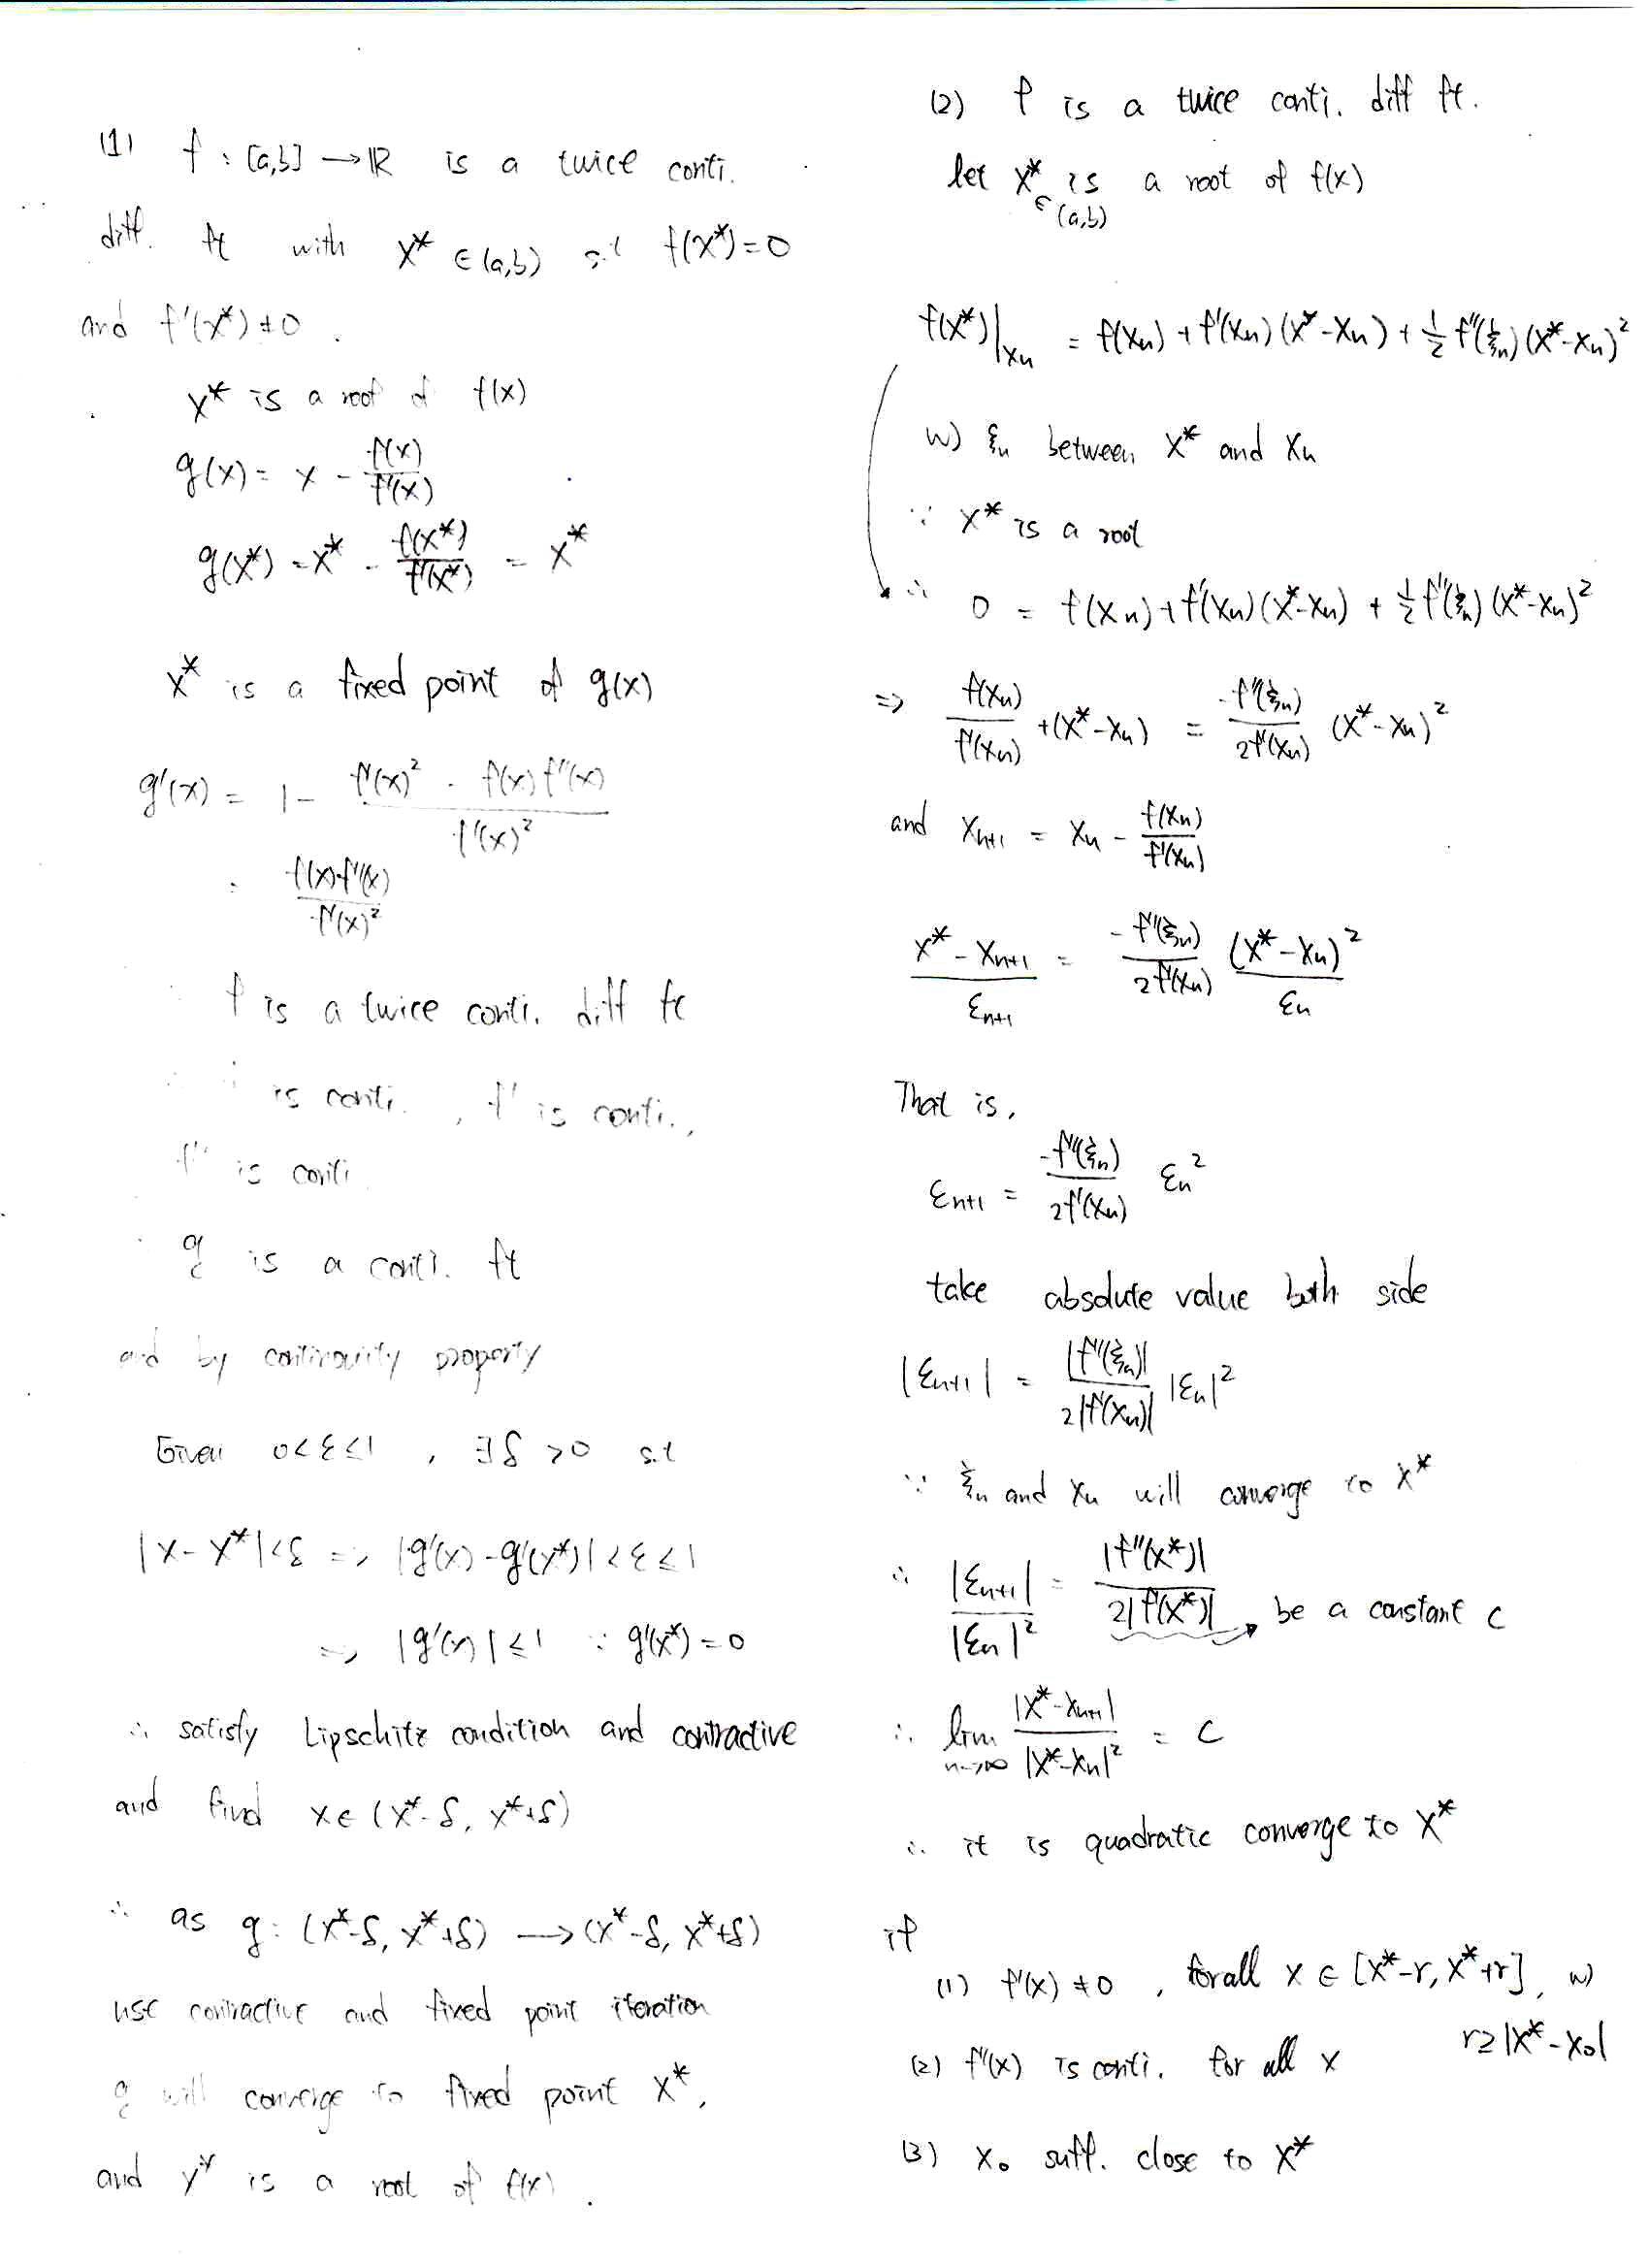 (1) f : [a,b] → ℝ is a twice conti.
diff. ft with x* ∈ (a,b) s.t f(x*) = 0
and f'(x*) ≠ 0.
x* is a root of f(x)
g(x) = x - f(x)/f'(x)
g(x*) = x* - f(x*)/f'(x*) = x*
x* is a fixed point of g(x)
g'(x) = 1 - (f'(x)² - f(x)f''(x))/f'(x)²
= f(x)f''(x)/f'(x)²
f is a twice conti. diff ft
is conti., f' is conti.,
f'' is conti
g is a conti. ft
and by continuity property
Given 0<ε≤1, ∃δ >0 s.t
|x-x*|<δ => |g'(x)-g'(x*)|<ε≤1
=> |g'(x)|≤1 ∵ g'(x*)=0
∴ satisfy Lipschitz condition and contractive
and find x∈(x*-δ, x*+δ)
∴ as g: (x*-δ, x*+δ) → (x*-δ, x*+δ)
use contractive and fixed point iteration
g will converge to fixed point x*,
and x* is a root of f(x).
(2) f is a twice conti. diff ft.
let x* is a root of f(x)
∈(a,b)
f(x*)|xₙ = f(xₙ) + f'(xₙ)(x*-xₙ) + 1/2 f''(ξₙ)(x*-xₙ)²
w) ξₙ between x* and xₙ
∵ x* is a root
∴ 0 = f(xₙ) + f'(xₙ)(x*-xₙ) + 1/2 f''(ξₙ)(x*-xₙ)²
=> f(xₙ)/f'(xₙ) + (x*-xₙ) = -f''(ξₙ)/2f'(xₙ) (x*-xₙ)²
and xₙ₊₁ = xₙ - f(xₙ)/f'(xₙ)
x*-xₙ₊₁ = -f''(ξₙ)/2f'(xₙ) (x*-xₙ)²
εₙ₊₁ εₙ
That is,
εₙ₊₁ = -f''(ξₙ)/2f'(xₙ) εₙ²
take absolute value both side
|εₙ₊₁| = |f''(ξₙ)|/2|f'(xₙ)| |εₙ|²
∵ ξₙ and xₙ will converge to x*
∴ |εₙ₊₁|/|εₙ|² = |f''(x*)|/2|f'(x*)| be a constant c
∴ lim n→∞ |x*-xₙ₊₁|/|x*-xₙ|² = c
∴ it is quadratic converge to x*
if
(1) f'(x) ≠ 0, for all x ∈ [x*-r, x*+r], w)
r≥|x*-x₀|
(2) f''(x) is conti. for all x
(3) x₀ suff. close to x*